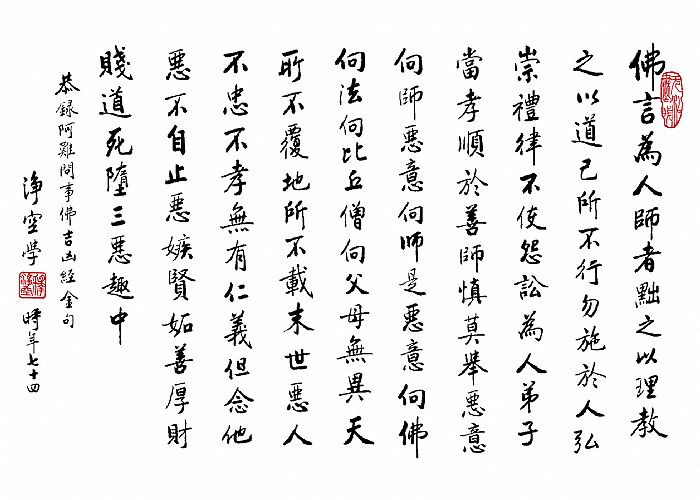 佛言為人師者黜之以理教
之以道己所不行勿施於人弘
崇禮律不使怨訟為人弟子
當孝順於善師慎莫舉惡意
向師惡意向師是惡意向佛
向法向比丘僧向父母無異天
所不覆地所不載末世惡人
不忠不孝無有仁義但念他
惡不自止惡嫉賢妬善厚財
賤道死墮三惡趣中
恭錄阿難問事佛吉凶經金句
淨空學
時年七十四